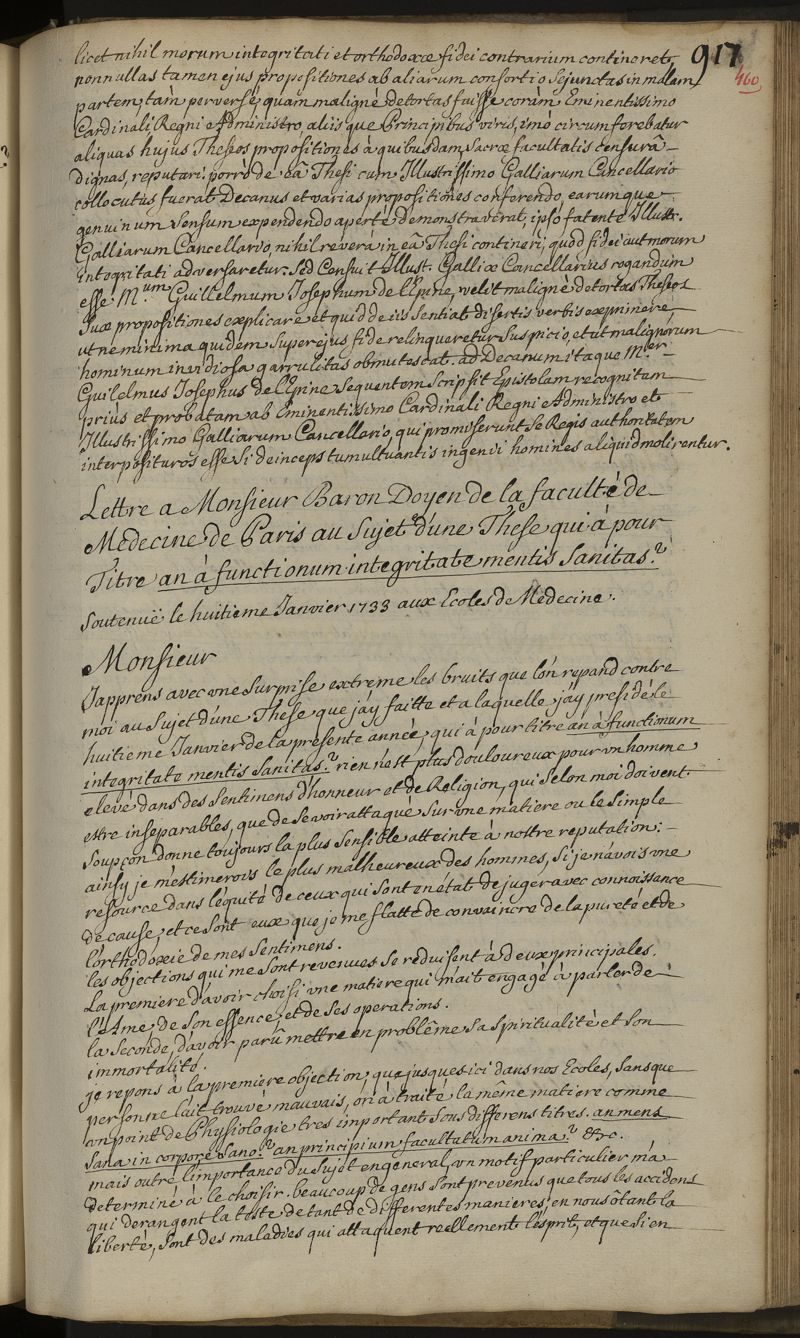 917
460
licet nihil morum integritati et orthodoxæ fidei contrarium contineret,
nonnullas tamen ejus propositiones ab aliarum consortio sejunctas in malam
partem, tàm perversé, quam maligné detortas fuisse coràm Eminentissimo
Cardinali Regni Administro, aliisque Principibus viris, imò circumforebatur
aliquas hujus Theseos propositiones à quibusdam sacræ facultatis censurâ
dignas, reputari. porrò de eâ Thesi cum Illustrissimo Galliarum Cancellario
collocutus fuerat Decanus et varias propositiones conferendo, earumque
genuinum sensum expendendo aperté demonstraverat, ipso fatente Illustr.
Galliarum Cancellario, nihil reverà in eâ Thesi contineri, quòd fidei aut morum
integritati adversaretur. Sed Censuit Illust. Galliæ Cancellarius rogandum
esse M.um Guillelmum Josephum de L'Epine, velit maligné detortas Theseos
suæ propositiones explicare et quid de iis sentiat disertis verbis exprimere,
ut ne minima quidem super ejus fide relinqueretur suspicio, et ut malignorum
hominum invidiosa garrulitas obmutescat. ad Decanum itaque M.er
Guilelmus Josephus de L'Epine sequentem scripsit Epistolam recognitam
priùs et probatam ab Eminentissimo Cardinali Regni Administro et
Illustrissimo Galliarum Cancellario, qui promiserunt se Regis authoritatem
interposituros esse si deinceps tumultuantis ingenii homines aliquid molirentur.
Lettre a Monsieur Baron Doyen de la faculté de
Medecine de Paris au Sujet d'une These qui à pour
Titre an à functionum integritate mentis Sanitas?
Soutenuë le huitieme Janvier 1733 aux Ecoles de Medecine.
Monsieur
J'apprens avec une surprise extreme les bruits que l'on repand contre
moi au Sujet d'une These que j'ay faitte et a laquelle j'ay presidé le
huitieme Janvier de la presente année, qui à pour titre an à functionum
integritate mentis Sanitas? rien n'est plus douloureux pour un homme
elevé dans des Sentimens d'honneur et de Religion, qui selon moi doivent
estre inseparables, que de se voir attaqué sur une matiere ou le simple
soupçon donne toujours la plus sensible atteinte à nostre reputation:
ainsy je m'estimerois le plus malheureux des hommes, si je n'avois une
resource dans l'équité de ceux qui sont en état de juger avec connoissance
de cause, et ce sont eux que je me flatte de convaincre de la pureté et de
l'orthodoxie de mes sentimens.
les objections qui me sont revenues se reduisent à deux principales.
La premiere d'avoir choisi une matiere qui m'ait engagé à parler de
l'Ame, de son essence, et de ses operations.
la seconde, d'avoir parû mettre en problême sa spiritualité et son
immortalité.
je repons à la premiere objection, que jusques ici dans nos Ecoles, sans que
personne l'ait trouvé mauvais, on à traité la même matiere comme
un point de Physiologie tres important sous differens titres. an mens
sana in corpore sano? an principium facultatum anima? &c.
mais outre l'importance du sujet en general, un motif particulier m'a
determiné à le choisir. beaucoup de gens sont prevenus que tous les accidens
qui derangent la teste de tant de differentes manieres, en nous ôtant la
liberté, sont des maladies qui attaquent reellement l'esprit, et que si en